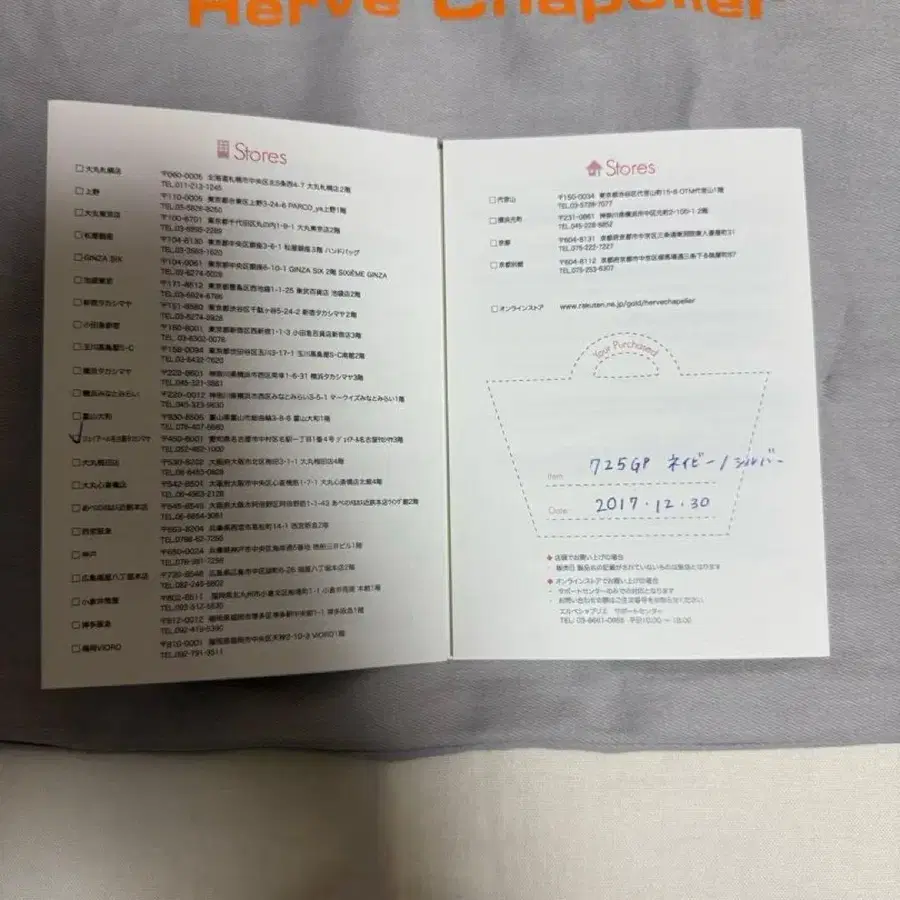 Herve Chapelier
Stores
大丸札幌店 〒060-0005 北海道札幌市中央区北5条西4-7 大丸札幌店2階
TEL.011-213-1245
上野 〒110-0005 東京都台東区上野3-24-6 PARCO_ya上野1階
大丸東京店 〒100-6701 東京都千代田区丸の内1-9-1 大丸東京店2階
TEL.03-6895-2289
松屋銀座 〒104-8130 東京都中央区銀座3-6-1 松屋銀座3階 ハンドバッグ
GINZA SIX 〒104-0061 東京都中央区銀座6-10-1 GINZA SIX 2階 SIXIÈME GINZA
TEL.03-6274-6028
〒171-8512 東京都豊島区西池袋1-1-25 東武百貨店
新宿タカシマヤ 〒151-8580 東京都渋谷区千駄ヶ谷5-24-2 新宿タカシマヤ2階
〒160-8001 東京都新宿区西新宿1-1-3 小田急百貨店新宿店3階
玉川髙島屋S・C 〒158-0094 東京都世田谷区玉川3-17-1 玉川髙島屋S・C南館2階
横浜タカシマヤ 神奈川県横浜市西区南幸1-6-31 横浜タカシマヤ3階
横浜みなとみらい 〒220-0012 神奈川県横浜市西区みなとみらい3-5-1 マークイズみなとみらい1階
富山大和 〒930-8505 富山県富山市総曲輪3-8-6 富山大和1階
ジェイアール名古屋タカシマヤ 〒450-6001 愛知県名古屋市中村区名駅一丁目1番4号
TEL.052-462-1000
大丸梅田店 〒530-8202 大阪府大阪市北区梅田3-1-1 大丸梅田店4階
大丸心斎橋店 〒542-8501 大阪府大阪市中央区心斎橋筋1-7-1
あべのハルカス近鉄本店 〒545-8545 大阪府大阪市阿倍野区阿倍野筋1-1-43
西宮阪急 〒663-8204 兵庫県西宮市高松町14-1 西宮阪急2階
神戸 〒650-0024 兵庫県神戸市中央区海岸通
広島福屋八丁堀本店 広島県広島市中区胡町6-26 福屋八丁堀本店2階
小倉井筒屋 〒802-8511 福岡県北九州市小倉北区船場町1-1 小倉井筒屋 本館1階
博多阪急 〒812-0012 福岡県福岡市博多区博多駅中央街1-1 博多阪急1階
福岡VIORO 〒810-0001 福岡県福岡市中央区天神2-10-3 VIORO1階
Stores
代官山 〒150-0034 東京都渋谷区代官山町15-8 OTM代官山1階
TEL.03-5728-7077
横浜元町 〒231-0861 神奈川県横浜市中区元町2-100-1 2階
京都 〒604-8131 京都府京都市中京区三条通東洞院東入菱屋町31
TEL.075-222-7227
〒604-8112 京都府京都市中京区柳馬場通三条下る
TEL.075-253-6307
オンラインストア www.rakuten.ne.jp/gold/hervechapelier
Your Purchased
Item: 725GP ネイビー/シルバー
Date: 2017.12.30
店頭でお買い上げの場合
販売日 製品名の記載がされていないものは無効となります
オンラインストアでお買い上げの場合
・サポートセンターのみでの対応となります
・お問い合わせの際はご注文番号をお知らせください
エルベシャプリエ サポートセンター